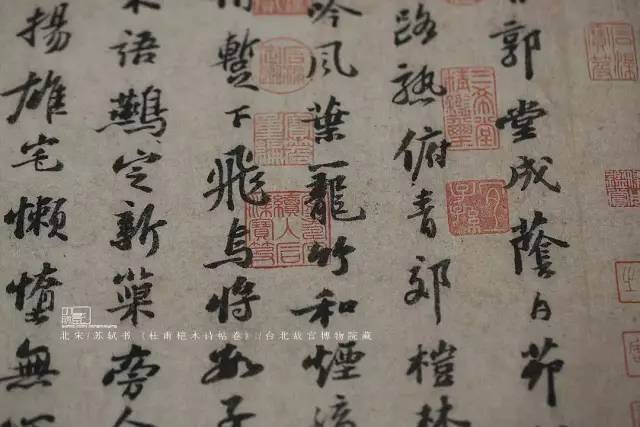 郭堂成蔭白茆
路熟俯青郊榿林
吟風葉籠竹和煙滴
暫下飛烏將數子
語鷰定新巢旁人
揚雄宅懶惰無
三希堂精鑑璽
宜子孫
北宋/苏轼书《杜甫桤木诗帖卷》/台北故宫博物院藏